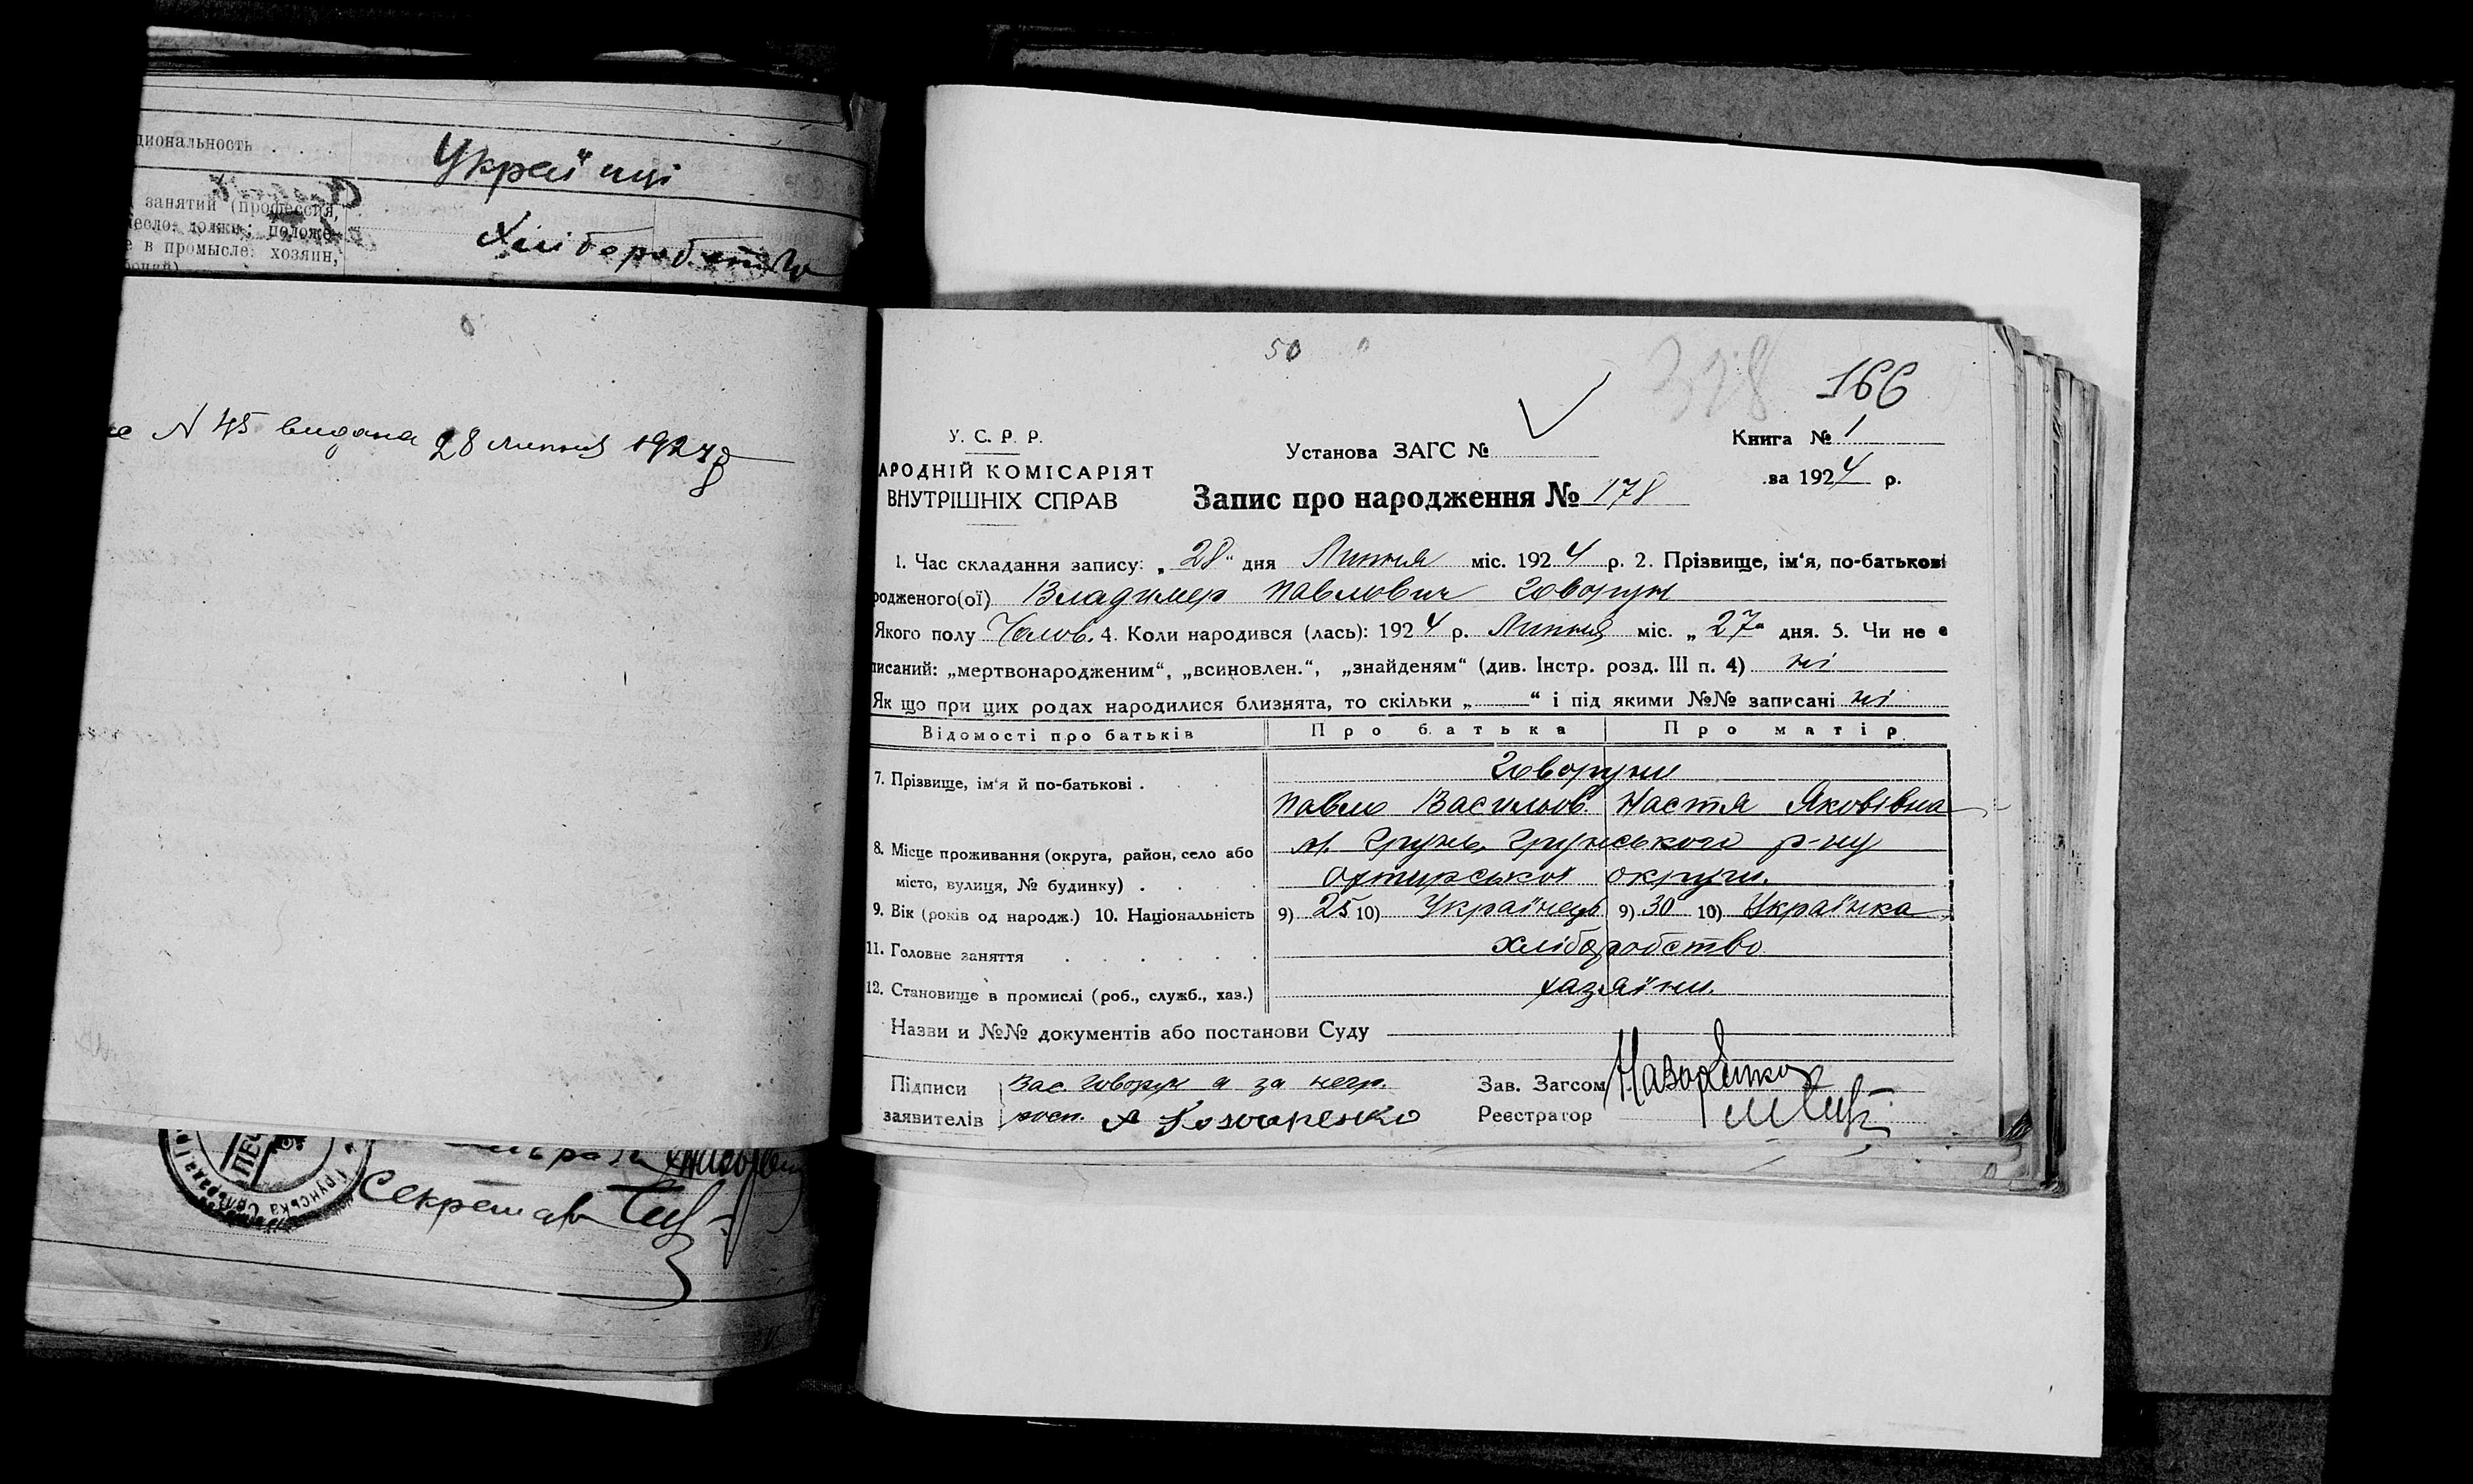 циональность
Украї нці
занятий (профессия,
в промысле: хозяин,
N 45 видана 28 липня 1924 р
50
318
166
У. С. Р. Р.
АРОДНІЙ КОМІСАРІЯТ
ВНУТРІШНІХ СПРАВ
Установа ЗАГС №
Книга № 1
за 1924 р.
Запис про народження № 178
1. Час складання запису: „28“ дня Липня міс. 1924 р. 2. Прізвище, ім‘я, по-батькові
родженого(ої) Владимер Павлович Говорун
Якого полу Чолов. 4. Коли народився (лась): 1924 р. Липня міс. „27“ дня. 5. Чи не є
писаний: „мертвонародженим“, „всиновлен.“, „знайденям“ (див. Інстр. розд. III п. 4) ні
Як що при цих родах народилися близнята, то скільки „——“ і під якими №№ записані ні
Відомості про батьків Про батька Про матір
7. Прізвище, ім‘я й по-батькові .
Говоруни
Павло Васильов. Настя Яковівна
8. Місце проживання (округа, район, село або
місто, вулиця, № будинку) .
м. Грунь, Грунського р-ну
Охтирської округи.
9. Вік (років од народж.) 10. Національність 9) 25 10) Українець 9) 30 10) Українка
11. Головне заняття хліборобство
12. Становище в промислі (роб., служб., хаз.) хазяїни.
Назви и №№ документів або постанови Суду
Підписи Вас. Говорун а за негр.
заявителів росп.
Зав. Загсом
Реєстратор
Секретар
Грунська